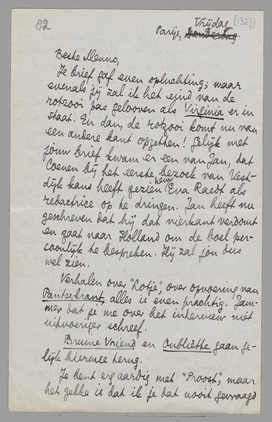 82
Vrijdag [1327]
Parijs, Donderdag
Beste Menno,
Je brief gaf even opluchting; maar
evenals jij zal ik het eind van de
rotzooi pas gelooven als Virginia er in
staat. En dan, de rotzooi komt nu van
een andere kant opzetten! Gelijk met
jouw brief kwam er een van Jan, dat
Coenen bij het eerste bezoek van Vest-
dijk kans heeft gezien hem Eva Raedt als
redactrice op te dringen. Jan heeft nu
geschreven dat hij dat vierkant verdomt
en gaat naar Holland om de boel per-
soonlijk te bespreken. Hij zal jou dus
wel zien.
Verhalen over "Kotje", over opvoering van
Pantserkrant, alles is even prachtig. Jam-
mer dat je me over het interview niet
uitvoeriger schreef.
Bruine Vriend en Oubliette gaan ge-
lijk hiermee terug.
Je bent erg aardig met "Proost", maar
het gekke is dat ik je dat nooit gevraagd